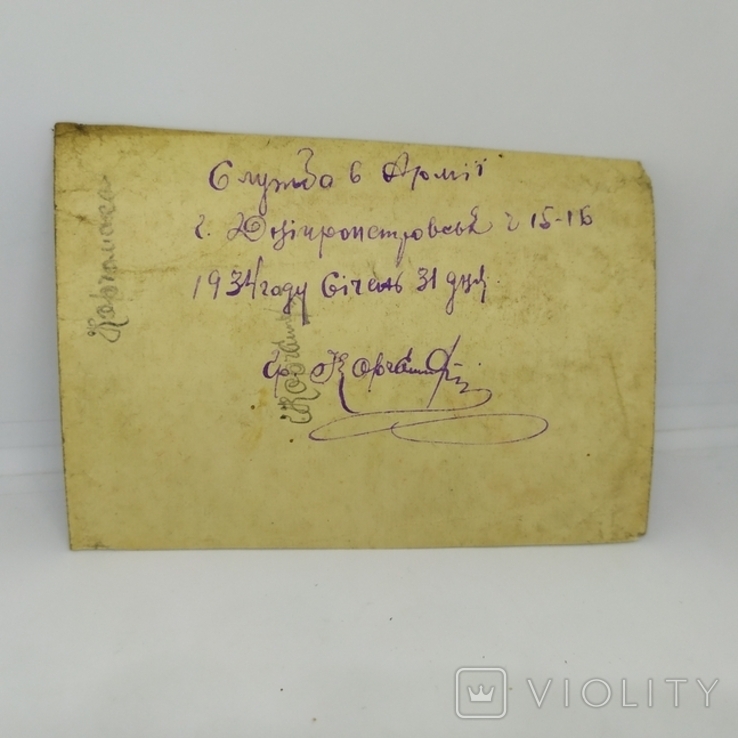 Служба в Армії
г. Дніпропетровськ г 15-16
1934 году Січень 31 дня
гр. Корчаш
VIOLITY